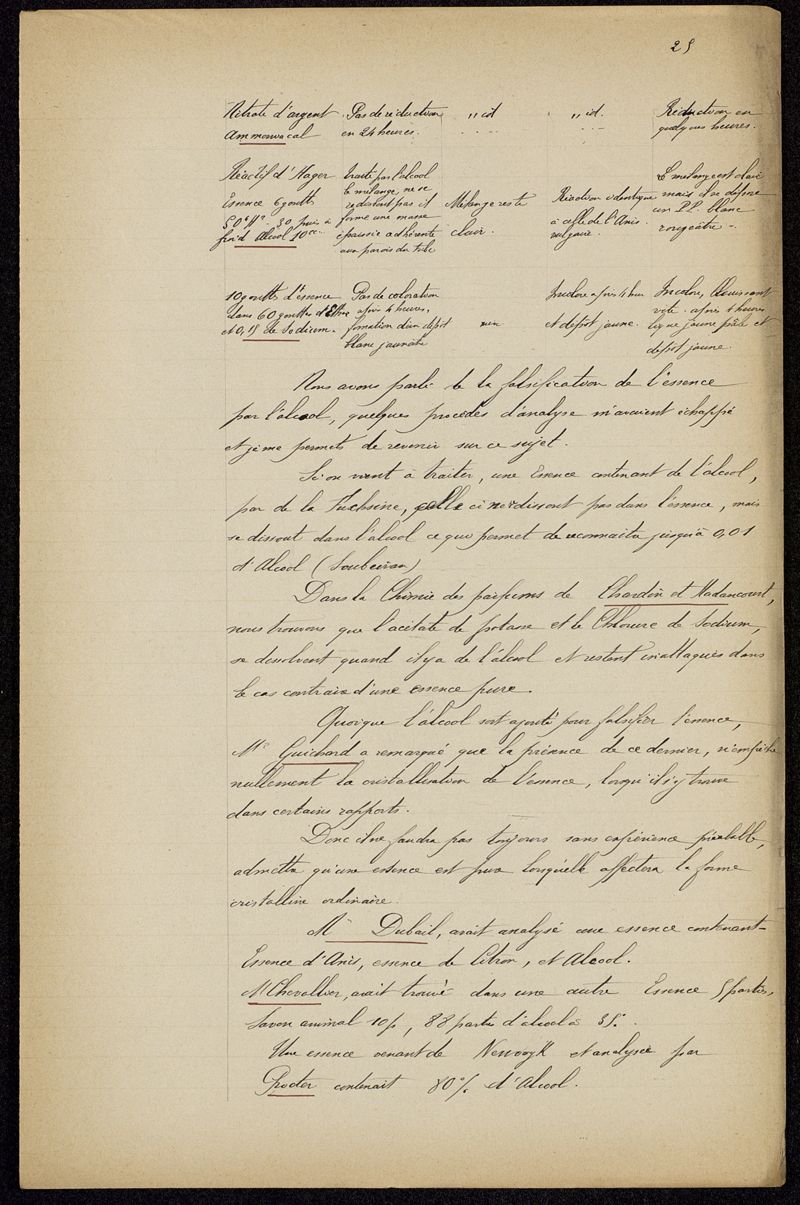 25
Nitrate d'argent Pas de réduction " id " id. Réduction en
ammoniacal en 24 heures. quelques heures.
Réactif d'Hager traité par l'alcool Le mélange est clair
Essence 6 gouttes le mélange ne se Mélange reste Réaction identique mais il se dépose
redissout pas il clair. à celle de l'Anis un P.P. blanc
froid Alcool 10cc forme une masse vulgaire. rougeâtre.
épaissie adhérente
aux parois du tube
10 gouttes d'essence Pas de coloration Incolore après 4 heures Incolore,
dans 60 gouttes d'Ether après 4 heures, et dépôt jaune. vite. après 4 heures
et 0,15 de Sodium. formation d'un dépôt liqueur jaune pâle et
blanc jaunâtre dépôt jaune.
Nous avons parlé de la falsification de l'essence
par l'alcool, quelques procédés d'analyse m'avaient échappé
et je me permets de revenir sur ce sujet.
Si on vient à traiter, une Essence contenant de l'alcool,
par de la Fuchsine, celle ci ne se dissout pas dans l'essence, mais
se dissout dans l'alcool ce qui permet de reconnaitre jusqu'à 0,01
d'Alcool (Soubeiran)
Dans la Chimie des parfums de Chardin et Massignon,
nous trouvons que l'acétate de potasse et le Chlorure de Sodium,
se dissolvent quand il y a de l'alcool et restent inattaqués dans
le cas contraire d'une essence pure.
Quoique l'alcool soit ajouté pour falsifier l'essence,
Mr Guichard a remarqué que la présence de ce dernier, n'empêche
nullement la cristallisation de l'essence, lorsqu'il s'y trouve
dans certains rapports.
Donc il ne faudra pas toujours sans expérience préalable,
admettre qu'une essence est pure lorsqu'elle affectera la forme
cristalline ordinaire.
Mr Dubail, avait analysé une essence contenant
Essence d'Anis, essence de Citron, et Alcool.
Mr Chevallier, avait trouvé dans une autre Essence 5 parties,
Savon animal 10 p, 88 parties d'alcool à 35°.
Une essence venant de Newyork et analysée par
Procter contenait 80% d'Alcool.